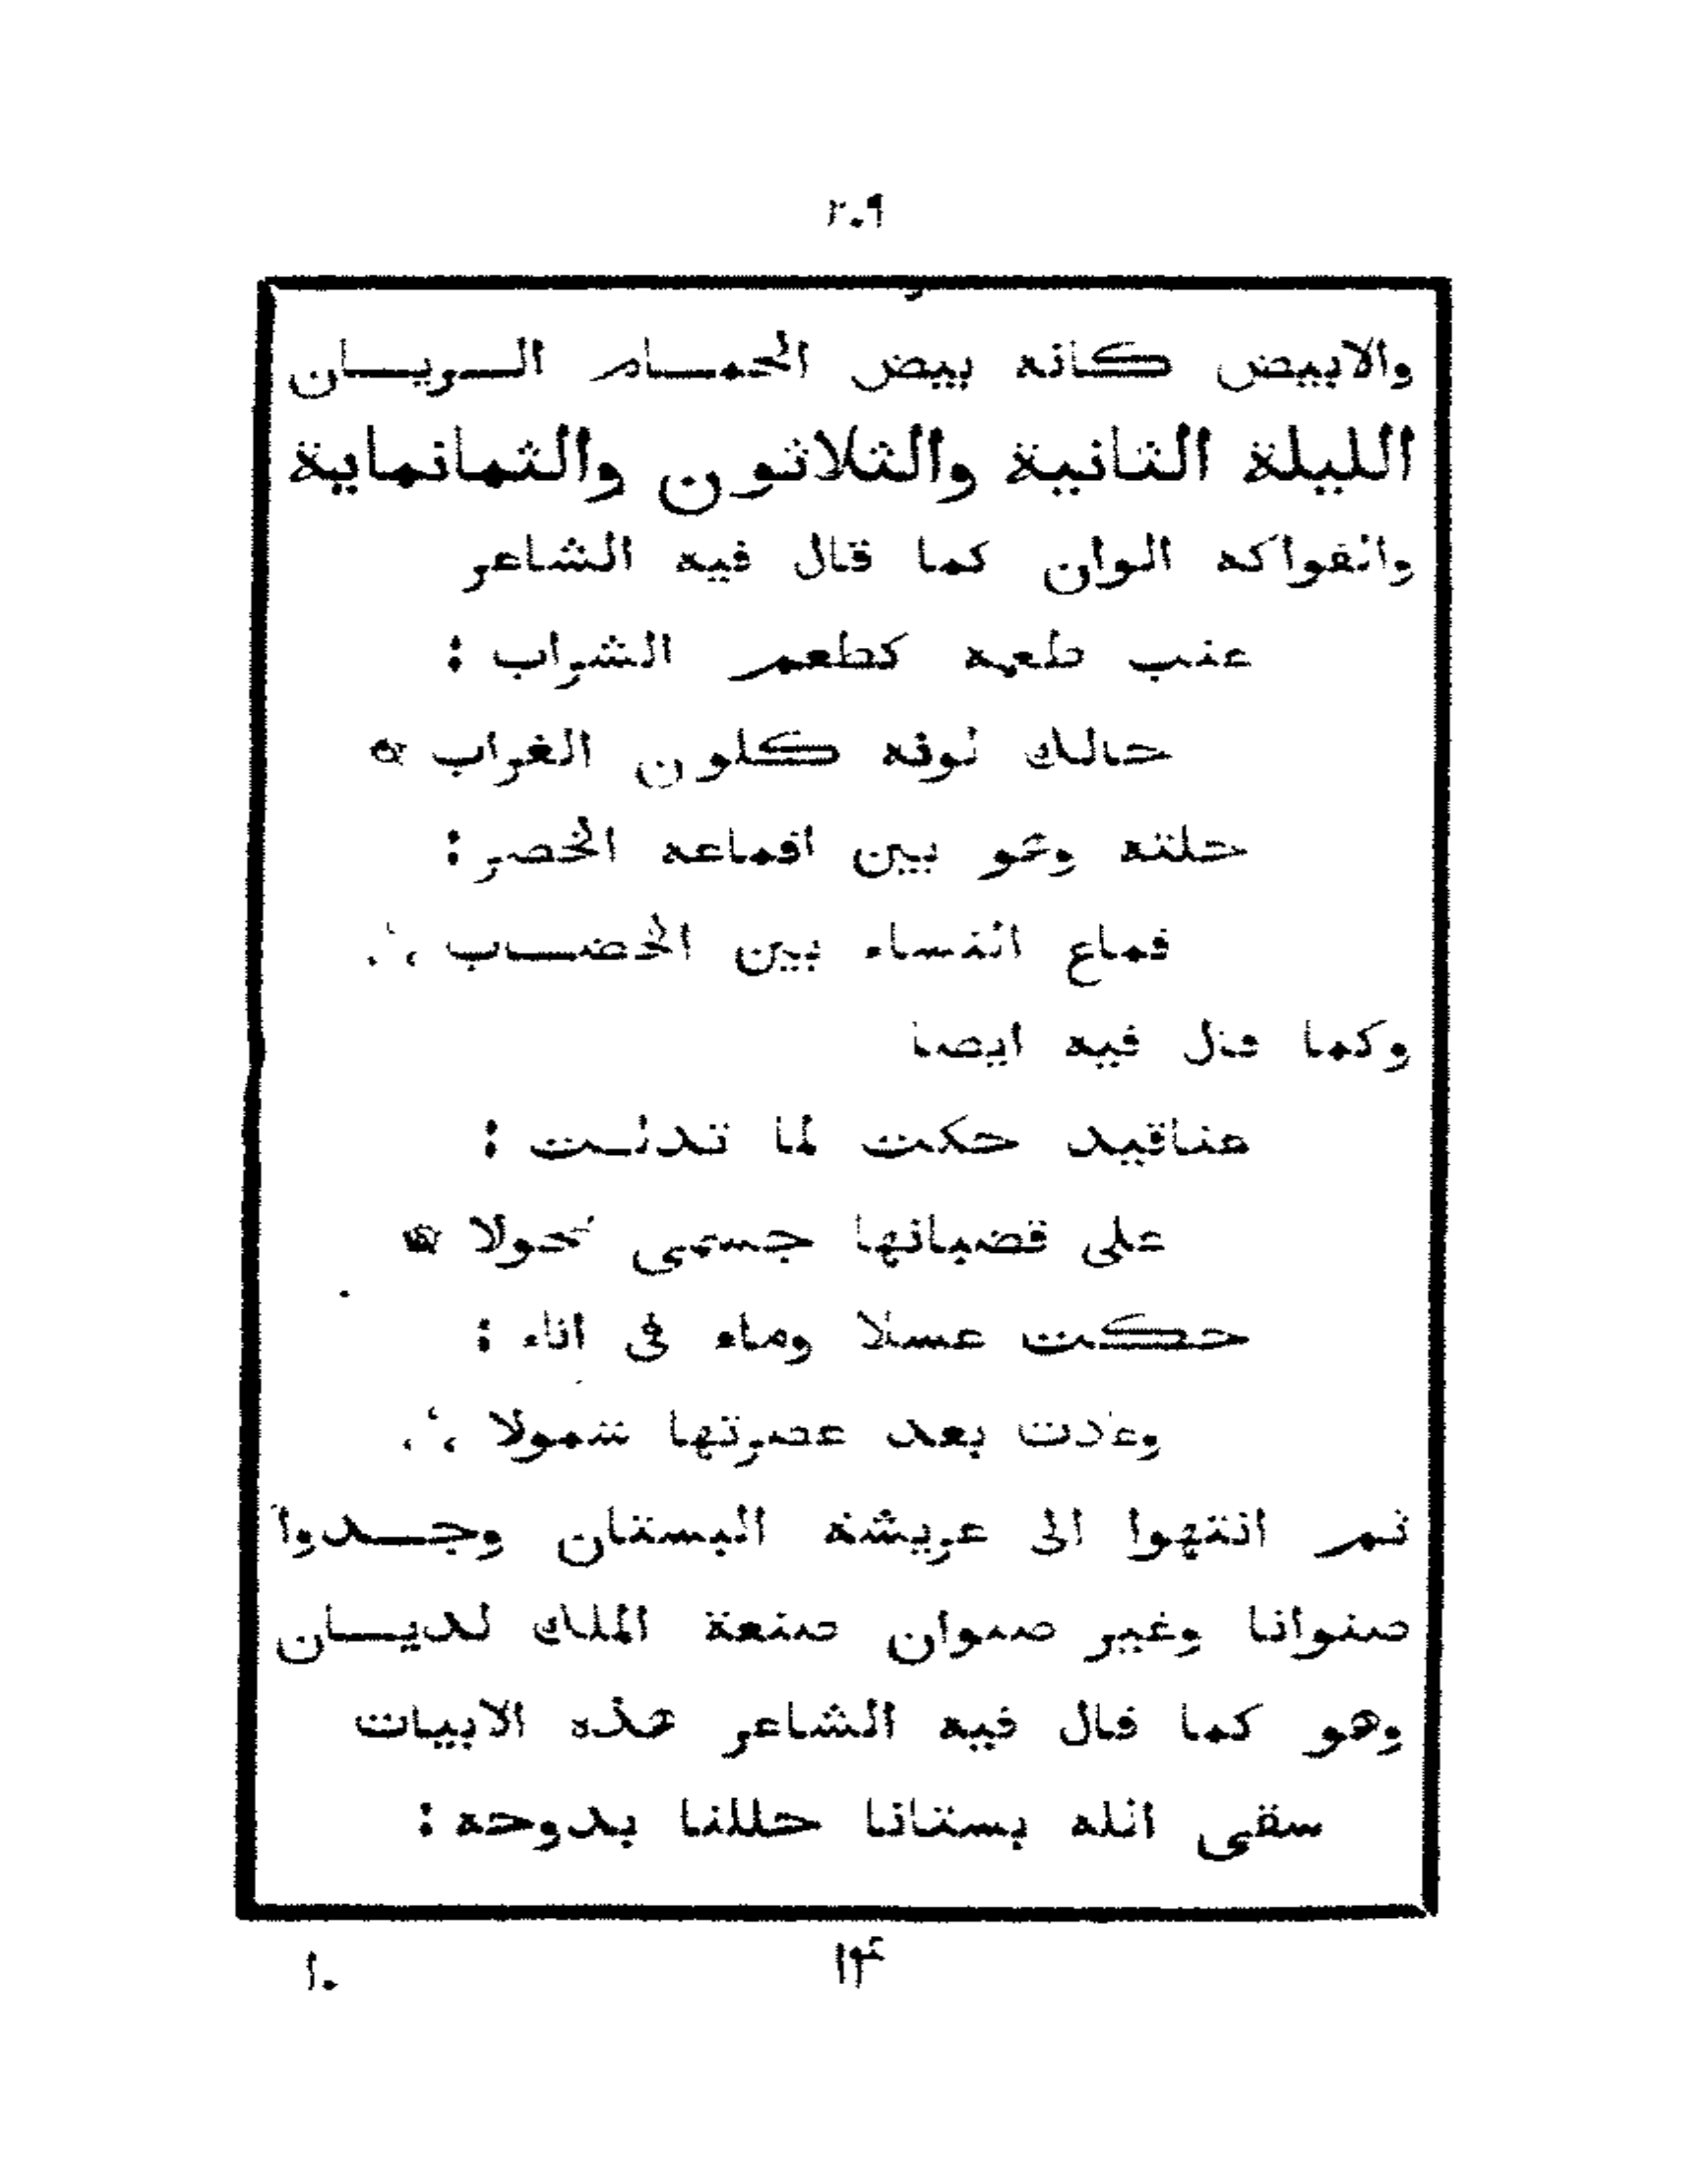 ٢٠٩
والابيض كانه بيض الحمام الريان
الليلة الثانية والثلاثون والثمانماية
والفواكه الوان كما قال فيه الشاعر
عنب طعمه كطعم الشراب :
حالك لونه كلون الغراب ۞
حلته وهو بين اقماعه الخضر :
قماع النساء بين الخضاب ؞
وكما قال فيه ايضا
عناقيد حكت لما تدلت :
على قضبانها جسمى نحولا ۞
حكت عسلا وماء فى اناء :
وعادت بعد عصرتها شمولا ؞
ثم انتهوا الى عريشة البستان وجدوا
صنوانا وغير صنوان صنعة الملك لديان
وهو كما قال فيه الشاعر هذه الابيات
سقى الله بستانا حللنا بدوحه :
١٠ ١۴